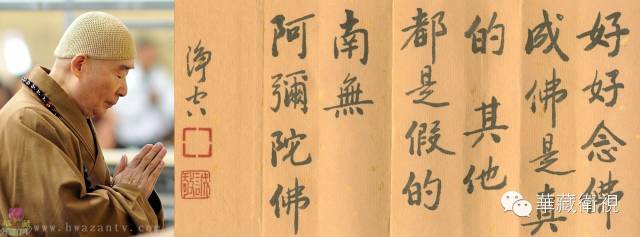 好好念佛
成佛是真
的 其他
都是假的
南無
阿彌陀佛
淨空
華藏衛視
www.hwazantv.com